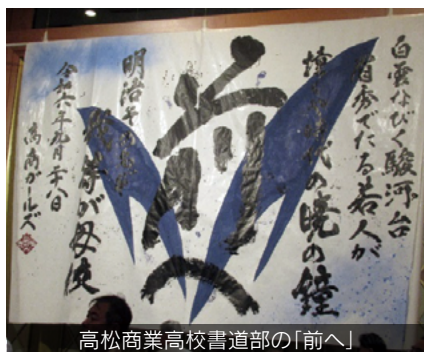 白雲なびく駿河台
眉秀でたる若人が
撞くや時代の暁の鐘
前へ
明治その名ぞ
我等が母校
令和六年九月二十八日
高商ガールズ
高松商業高校書道部の「前へ」